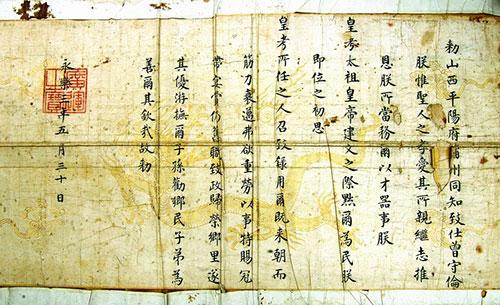 勑山西平陽府蒲州同知致仕曾守倫
朕惟聖人之孝愛其所親継志推
恩朕所當務爾以才器事朕
皇考太祖皇帝建文之際黜爾為民朕
即位之初思
皇考所任之人召致錄用爾既来朝而
筋力衰邁弗欲重勞以事特賜冠
帶宴賞仍舊職致政歸榮鄉里遂
其優游撫爾子孫勸鄉民子弟為
善爾其欽哉故勑
永樂三年五月三十日